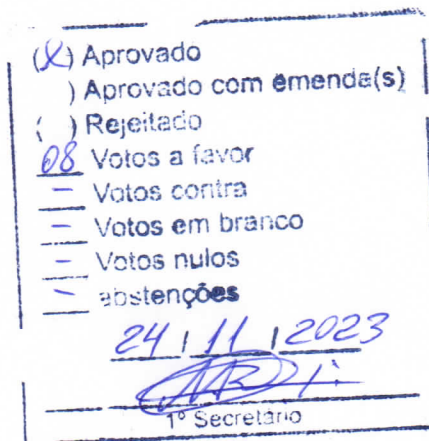 (X) Aprovado
) Aprovado com emenda(s)
( ) Rejeitado
08 Votos a favor
- Votos contra
- Votos em branco
- Votos nulos
- abstenções
24 / 11 / 2023
1º Secretário